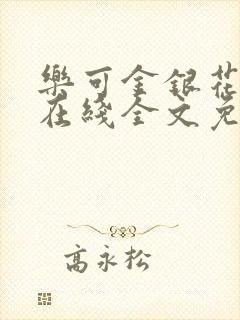 樂可金銀花
在綫全文免
高永松